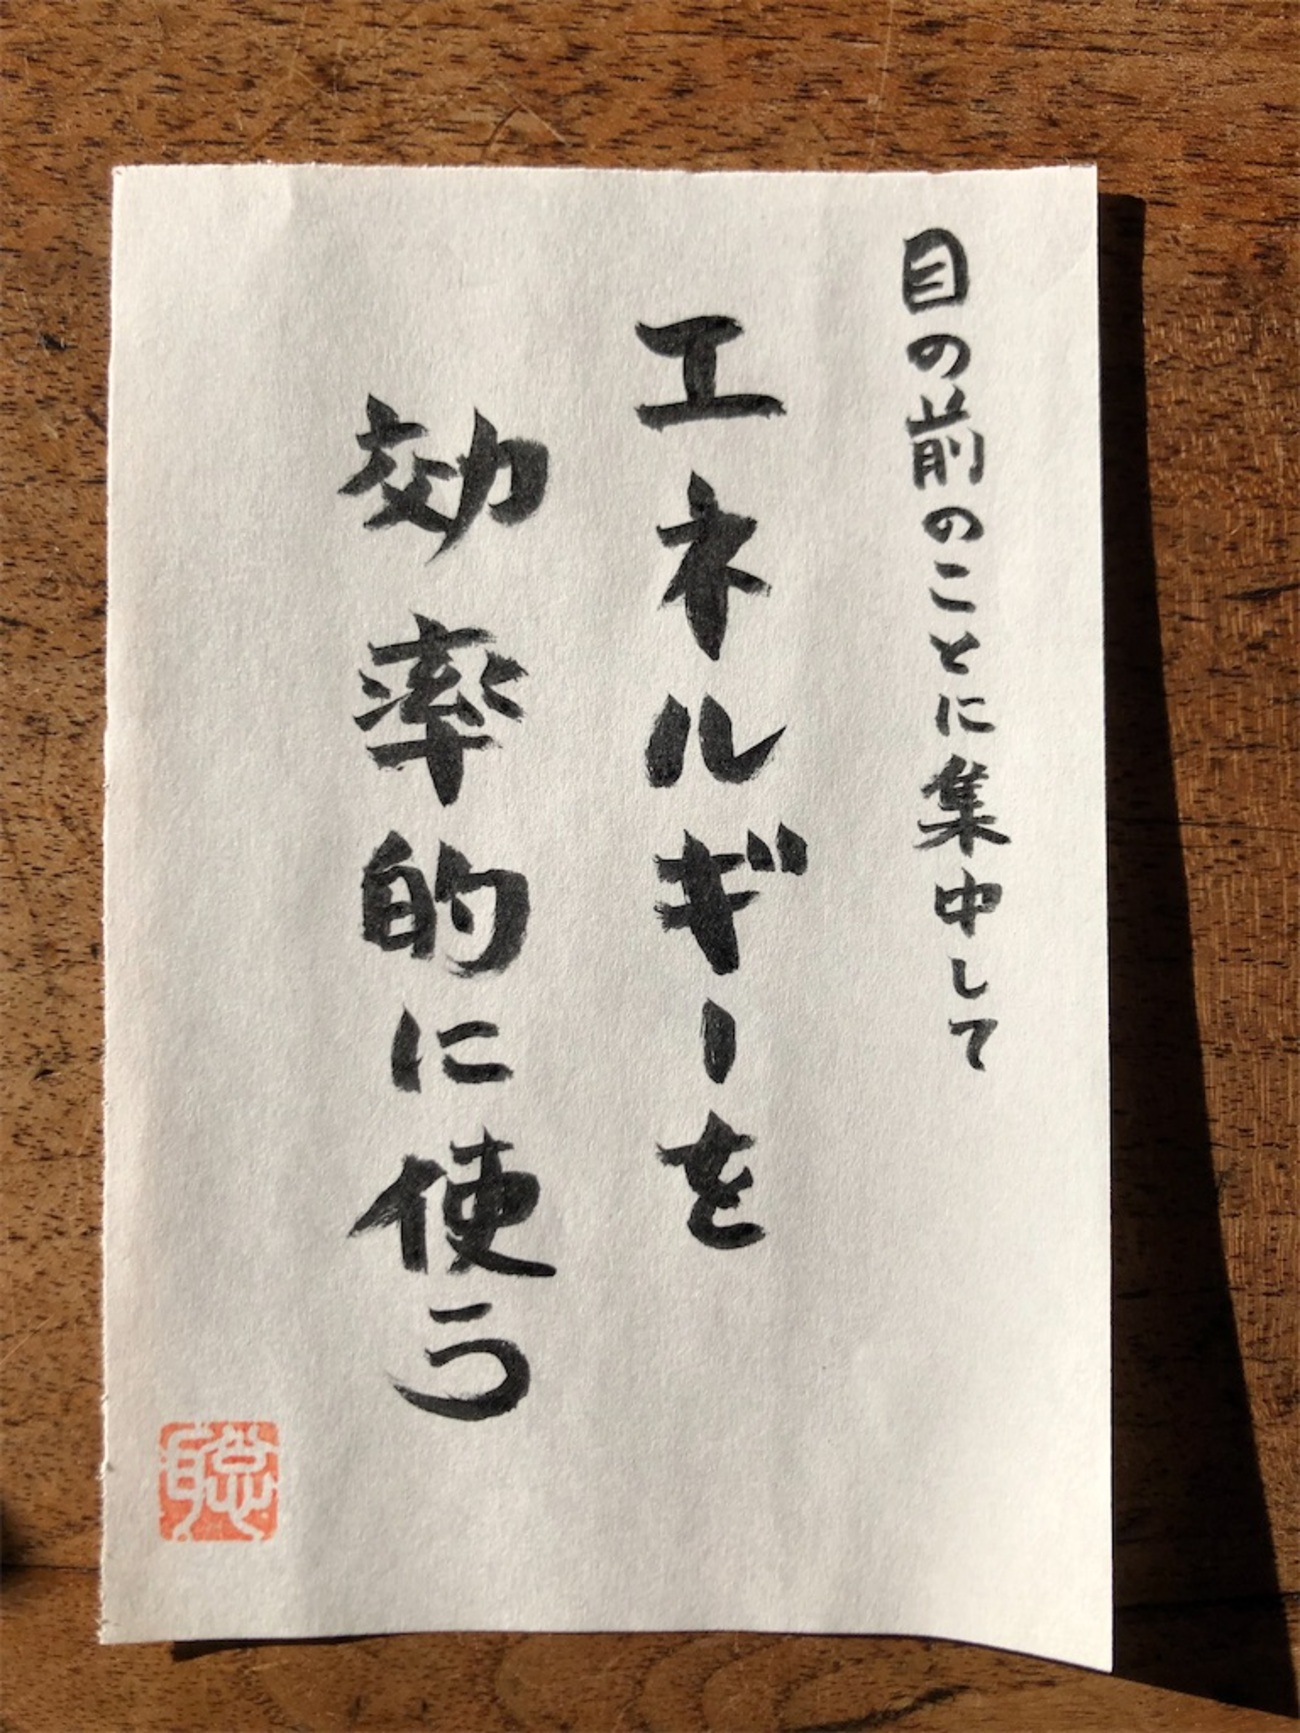 目の前のことに集中して
エネルギーを
効率的に使う
聡